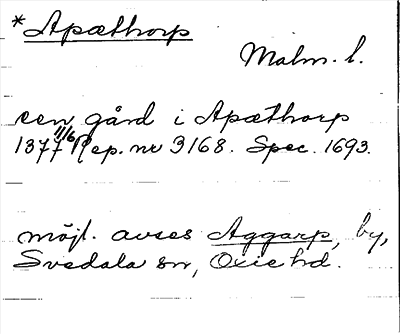 *Apæthorp
Malm. l.
een gård i Apæthorp
1377 11/6 Rep. nr 3168. Spec. 1693.
möjl. avses Aggarp, by,
Svedala sn, Oxie hd.